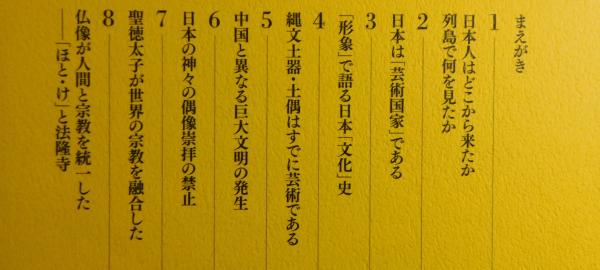 まえがき
1
日本人はどこから来たか
列島で何を見たか
2
日本は「芸術国家」である
3
「形象」で語る日本「文化」史
4
縄文土器・土偶はすでに芸術である
5
中国と異なる巨大文明の発生
6
日本の神々の偶像崇拝の禁止
7
聖徳太子が世界の宗教を融合した
8
仏像が人間と宗教を統一した
──「ほと・け」と法隆寺